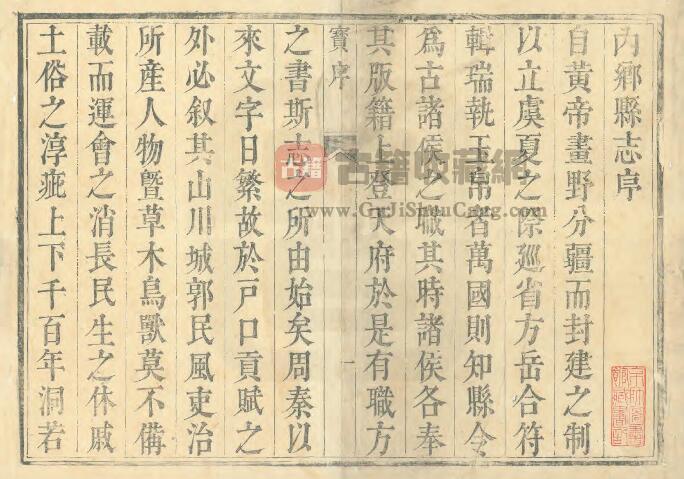 内鄉縣志序
自黃帝畫野分疆而封建之制
以立虞夏之際巡省方岳合符
輯瑞執玉帛者萬國則知縣令
爲古諸侯之職其時諸侯各奉
其版籍上登天府於是有職方
寶序
一
之書斯志之所由始矣周秦以
來文字日繁故於戸口貢賦之
外必叙其山川城郭民風吏治
所産人物曁草木鳥獸莫不備
載而運會之消長民生之休戚
土俗之淳疵上下千百年洞若
古籍
古籍收藏網
www.GuJiShouCang.com